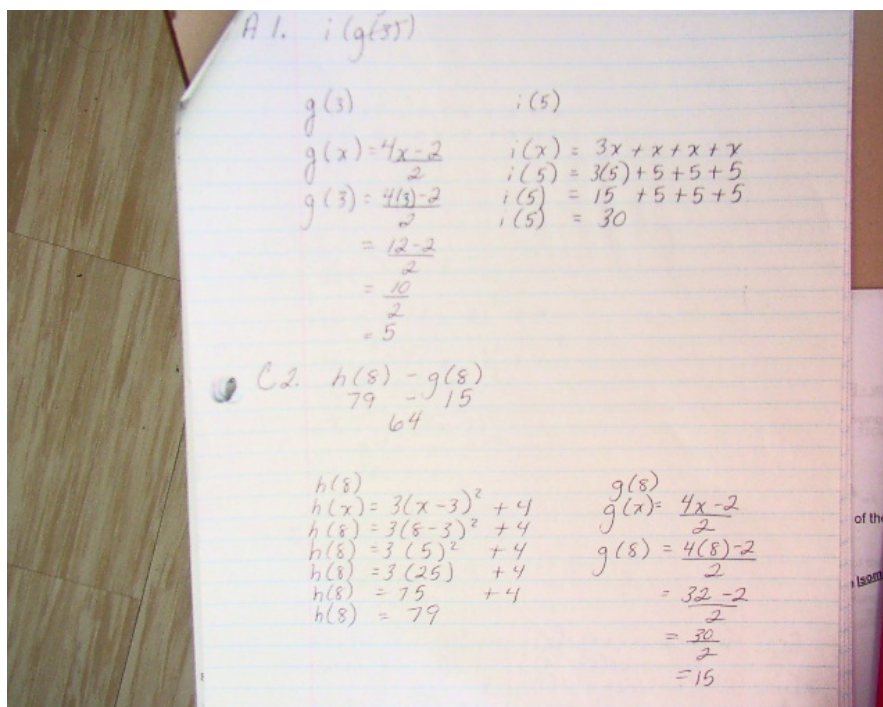 A 1. i(g(3))
g(3)
g(x) = 4x-2
2
g(3) = 4(3)-2
2
= 12-2
2
= 10
2
= 5
i(5)
i(x) = 3x + x + x + x
i(5) = 3(5) + 5 + 5 + 5
i(5) = 15 + 5 + 5 + 5
i(5) = 30
C2. h(8) - g(8)
79 - 15
64
h(8)
h(x) = 3(x-3)² + 4
h(8) = 3(8-3)² + 4
h(8) = 3(5)² + 4
h(8) = 3(25) + 4
h(8) = 75 + 4
h(8) = 79
g(8)
g(x) = 4x-2
2
g(8) = 4(8)-2
2
= 32-2
2
= 30
2
= 15
of the
Isom